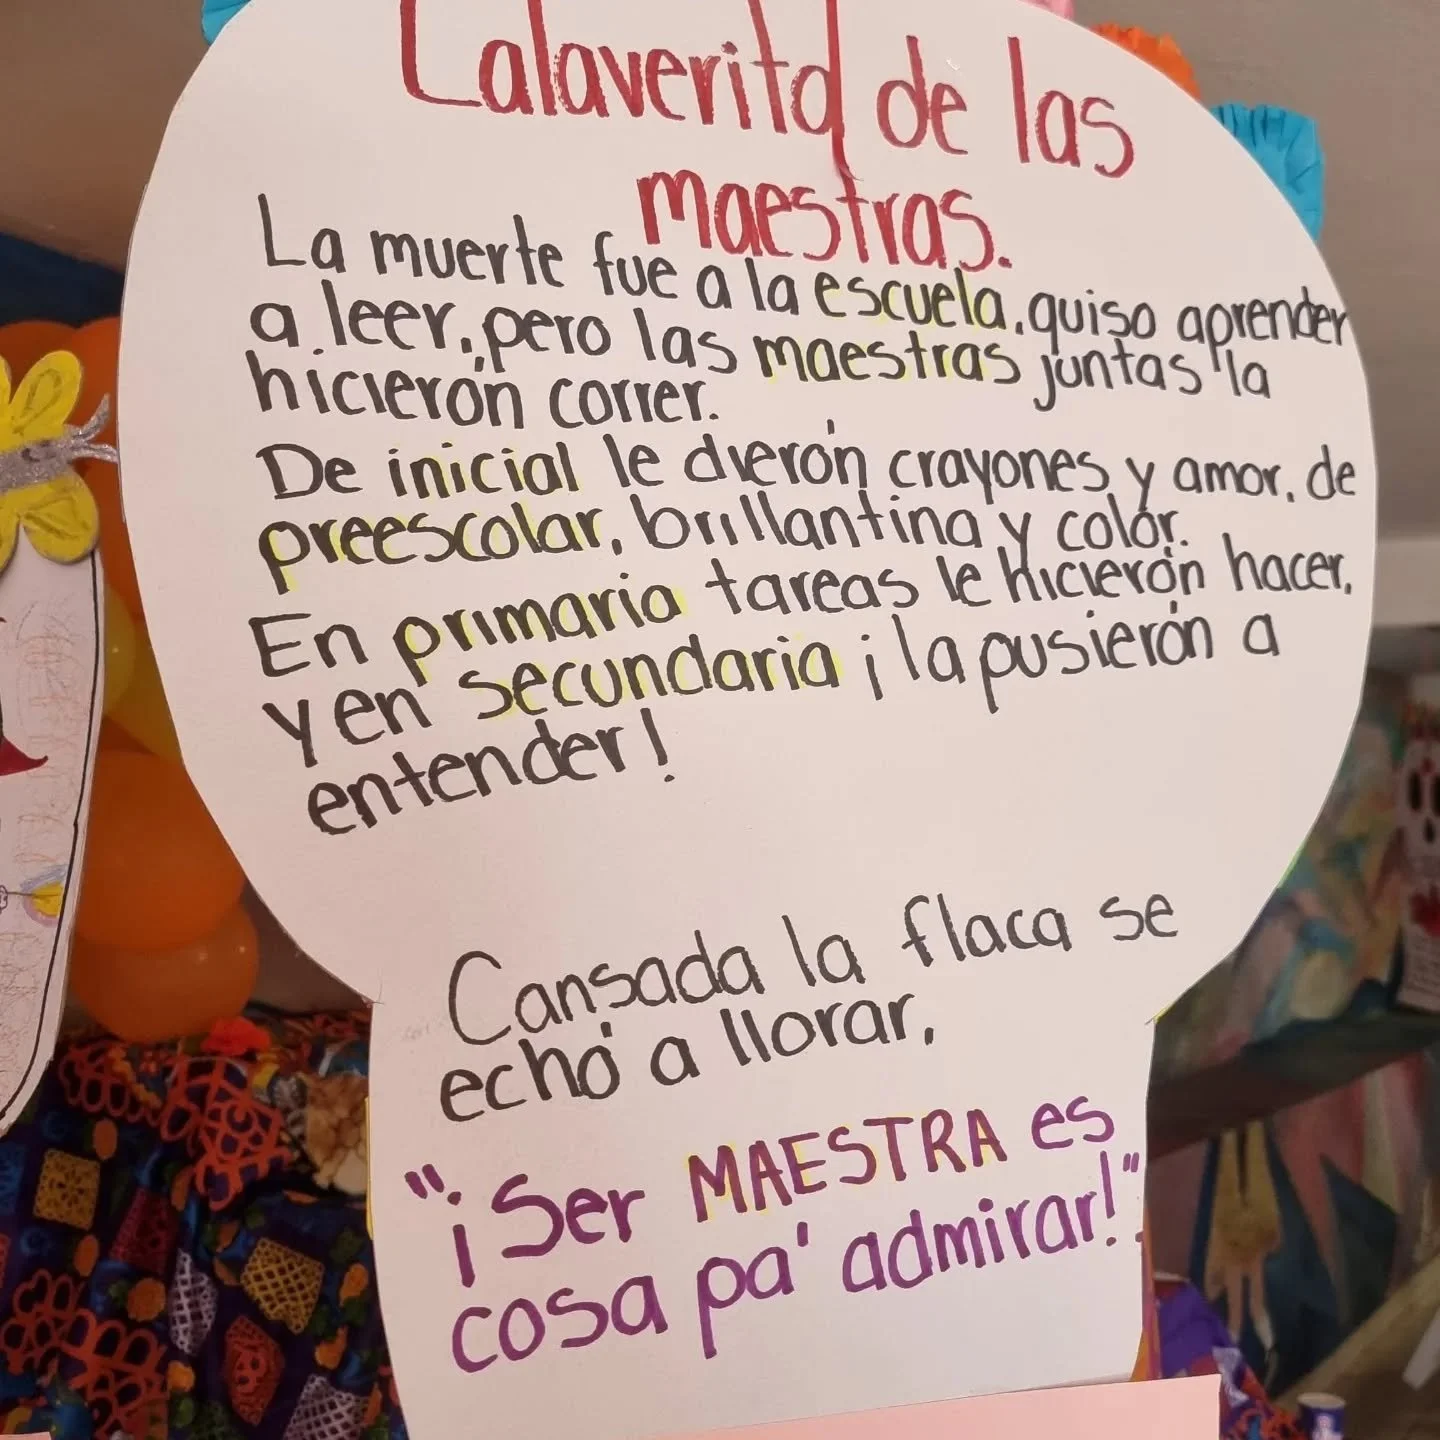 Calaverita de las
maestras.
La muerte fue a la escuela, quiso aprender
a leer, pero las maestras juntas la
hicierón correr.
De inicial le dierón crayones y amor, de
preescolar, brillantina y colór.
En primaria tareas le hicierón hacer,
y en secundaria ¡la pusierón a
entender!
Cansada la flaca se
echó a llorar,
"¡Ser MAESTRA es
cosa pa' admirar!"